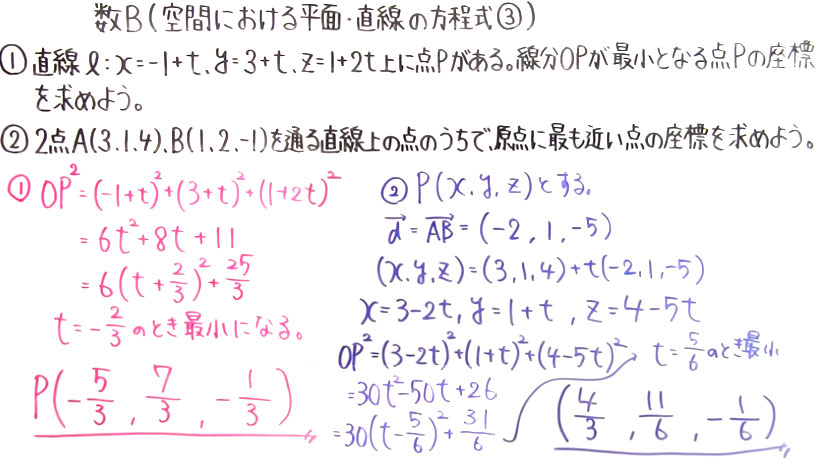 数B(空間における平面·直線の方程式③)
①直線ℓ:x=-1+t、y=3+t、z=1+2t上に点Pがある。線分OPが最小となる点Pの座標
を求めよう。
②2点A(3、1、4)、B(1、2、-1)を通る直線上の点のうちで、原点に最も近い点の座標を求めよう。
① OP²=(-1+t)²+(3+t)²+(1+2t)²
=6t²+8t+11
=6(t+2/3)²+25/3
t=-2/3のとき最小になる。
P(-5/3, 7/3, -1/3)
② P(x、y、z)とする。
d→=AB→=(-2, 1, -5)
(x、y、z)=(3、1、4)+t(-2、1、-5)
x=3-2t, y=1+t, z=4-5t
OP²=(3-2t)²+(1+t)²+(4-5t)²
=30t²-50t+26
=30(t-5/6)²+31/6
t=5/6のとき最小
(4/3, 11/6, -1/6)